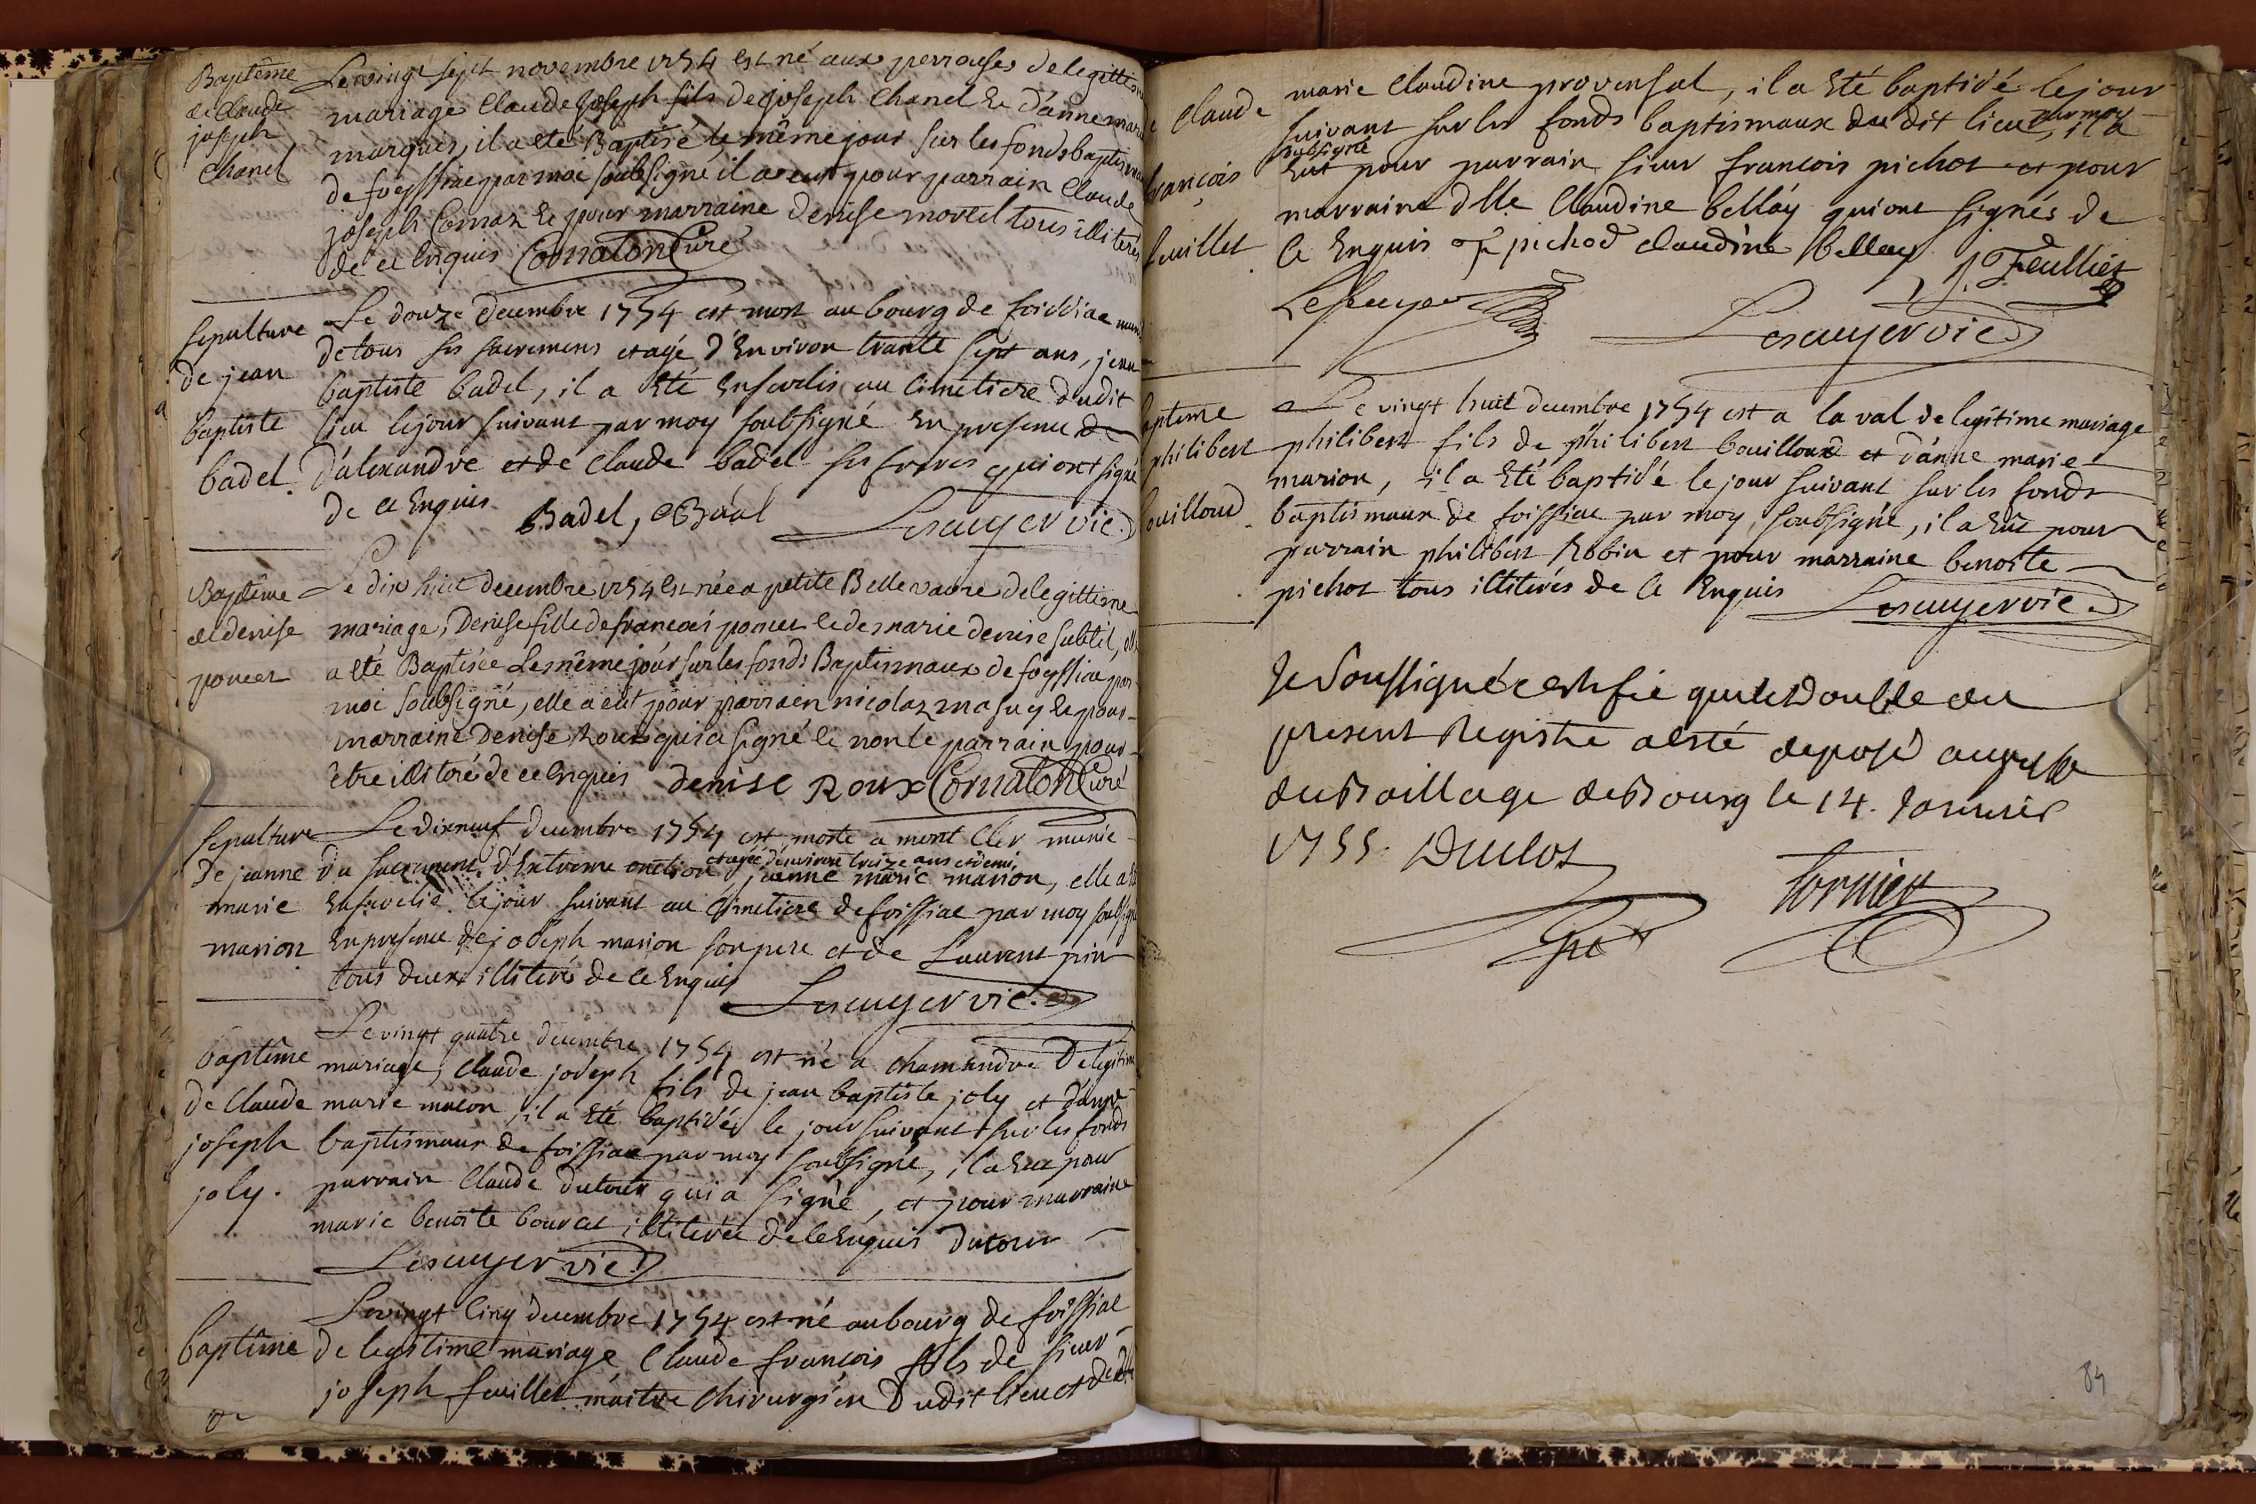 Baptême
de Claude
joseph
Chanel
Le vingt sept novembre 1754 est né aux perrouses de legittime
mariage Claude Joseph fils de joseph Chanel et d'anne marie
marguin, il a eté Baptisé le même jour sur les fonds baptismaux
de foyssiac par moi soubsigné il a eut pour parrain Claude
joseph Comaz et pour marraine denise morel tous illiteres
de ce Enquis Cornaton Curé
sepulture
de jean
baptiste
badel.
Le douze decembre 1754 est mort au bourg de foissiac muni
de tous ses sacremens et agé d'Environ trante sept ans, jean
baptiste badel, il a Eté Enseveli au cimetiere dudit
lieu le jour suivant par moy soubsigné En presence de
d'alexandre et de Claude badel ses freres qui ont signé
de ce Enquis Badel, CBadel Lescuyer vic.
Baptême
de denise
poncet
Le dix huit decembre 1754 est née a petite Bellevavre de legittime
mariage, Denise fille de francois poncet et de marie denise subtil, elle
a eté Baptisée Le même jour sur les fonds Baptismaux de foyssiac par
moi soubsigné, elle a eut pour parrain nicolaz masuy et pour
marraine denise Roux qui a signé et non le parrain pour
être illiteré de ce Enquis denise Roux Cornaton Curé
sepulture
de jeanne
marie
marion
Le dixneuf decembre 1754 est morte a mont Cler munie
et agée d'environ treize ans et demi
du sacrement d'Extreme onction jeanne marie marion, elle a Eté
Ensevelie le jour suivant au Cimetiere de foissiac par moy soubsigné
En presence de joseph marion son pere et de Laurent pin
tous deux illiterés de ce Enquis Lescuyer vic.
baptême
de Claude
joseph
joly.
Le vingt quatre decembre 1754 est né a chamandre de legitime
mariage, Claude joseph fils de jean baptiste joly et d'anne
marie macon, il a Eté baptisé le jour suivant sur les fonds
baptismaux de foissiac par moy soubsigné, il a Eut pour
parrain Claude dutour qui a signé, et pour marraine
marie benoite bourcet illiterée de ce Enquis Dutour
Lescuyer vic.
baptême
de
Le vingt Cinq decembre 1754 est né au bourg de foissiac
de legitime mariage Claude francois fils de sieur
joseph feuillet maitre Chirurgien dudit lieu et de dlle
Claude
françois
feuillet
marie Claudine provensal, il a Eté baptisé le jour
par moy
suivant sur les fonds baptismaux du dit lieu, il a
subsigné
Eut pour parrain sieur francois pichot et pour
marraine dlle Claudine bellay qui ont signés de
Ce Enquis pichod Claudine bellay J. Feulliet
Lescuyer Lescuyer vic.
baptême
philibert
bouilloud
Le vingt huit decembre 1754 est a la val de legitime mariage
philibert fils de philibert bouilloux et d'anne marie
marion, il a Eté baptisé le jour suivant sur les fonds
baptismaux de foissiac par moy soubsigné, il a Eût pour
parrain philibert Robin et pour marraine benoite
pichot tous illiterés de Ce Enquis Lescuyer vic.
Je Soussigné certifie que le Double du
present Registre a esté deposé au greffe
du Baillage de Bourg le 14. Janvier
1755. Duclos fornier
84